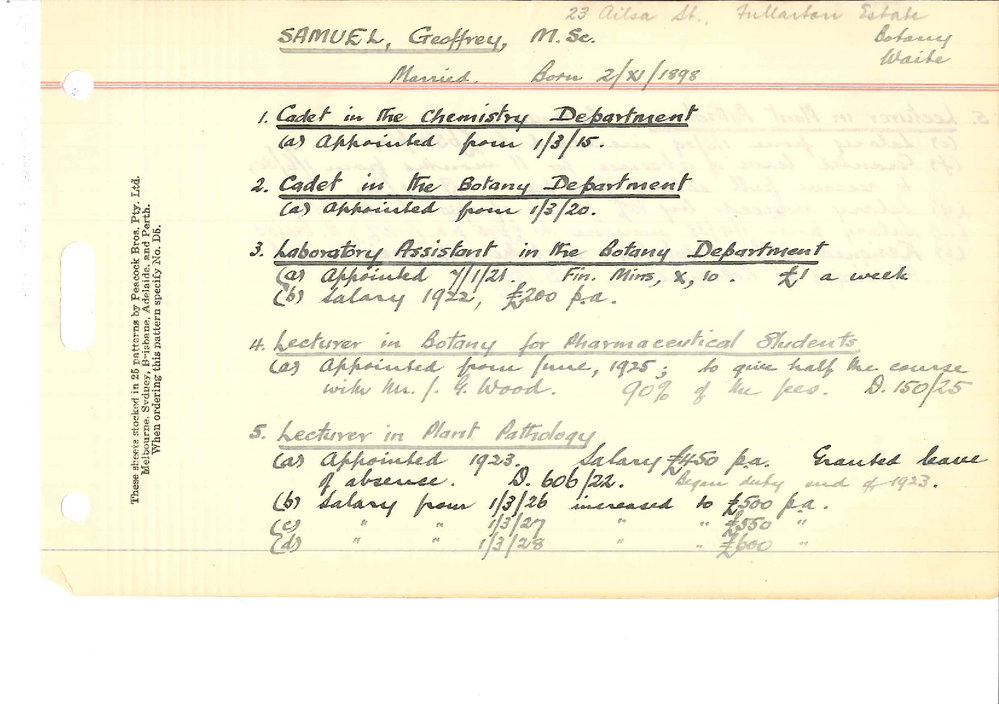 23 Ailsa St., Fullarton Estate
SAMUEL, Geoffrey, M. Sc.
Botany
Waite
Married. Born 2/XI/1898
1. Cadet in the Chemistry Department
(a) Appointed from 1/3/15.
2. Cadet in the Botany Department
(a) Appointed from 1/3/20.
3. Laboratory Assistant in the Botany Department
(a) Appointed 7/1/21. Fin. Mins, X, 10. £1 a week
(b) Salary 1922, £200 p.a.
4. Lecturer in Botany for Pharmaceutical Students
(a) Appointed from June, 1925; to give half the course
with Mr. J. G. Wood. 90% of the fees. D. 150/25
5. Lecturer in Plant Pathology
(a) Appointed 1923. Salary £450 p.a. Granted leave
of absence. D. 606/22. Began duty end of 1923.
(b) Salary from 1/3/26 increased to £500 p.a.
(c) " " 1/3/27 " " £550 "
(d) " " 1/3/28 " " £600 "
These sheets stocked in 25 patterns by Peacock Bros. Pty. Ltd.
Melbourne, Sydney, Brisbane, Adelaide, and Perth.
When ordering this pattern specify No. D5.